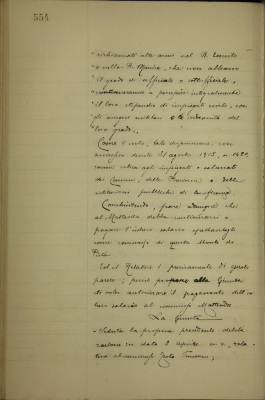 554
"richiamati alle armi nel R. Esercito
"o nella R. Marina, che non abbiano
"il grado di ufficiale o sott'ufficiale,
"continueranno a percepire integralmente
"il loro stipendio di impiegati civili, con
gli assegni militari e le indennità del
"loro grado.
Come è noto, tale disposizione, con
decreto 31 agosto 1915, n. 1420,
venne estesa agli impiegati e salariati
dei Comuni, delle Provincie e delle
istituzioni pubbliche di beneficenza
Concludendo, pare adunque che
al Mattedda debba continuarsi a
pagare l'intero salario spettantegli
come commesso di questo Monte di
Pietà
Ed il Relatore è precisamente di questo
parere; perciò propone alla Giunta
di voler autorizzare il pagamento dell'in
tero salario al commesso
La Giunta
- Veduta la propria precedente delibe
razione in data 8 Aprile u.s., rela
tiva al commesso